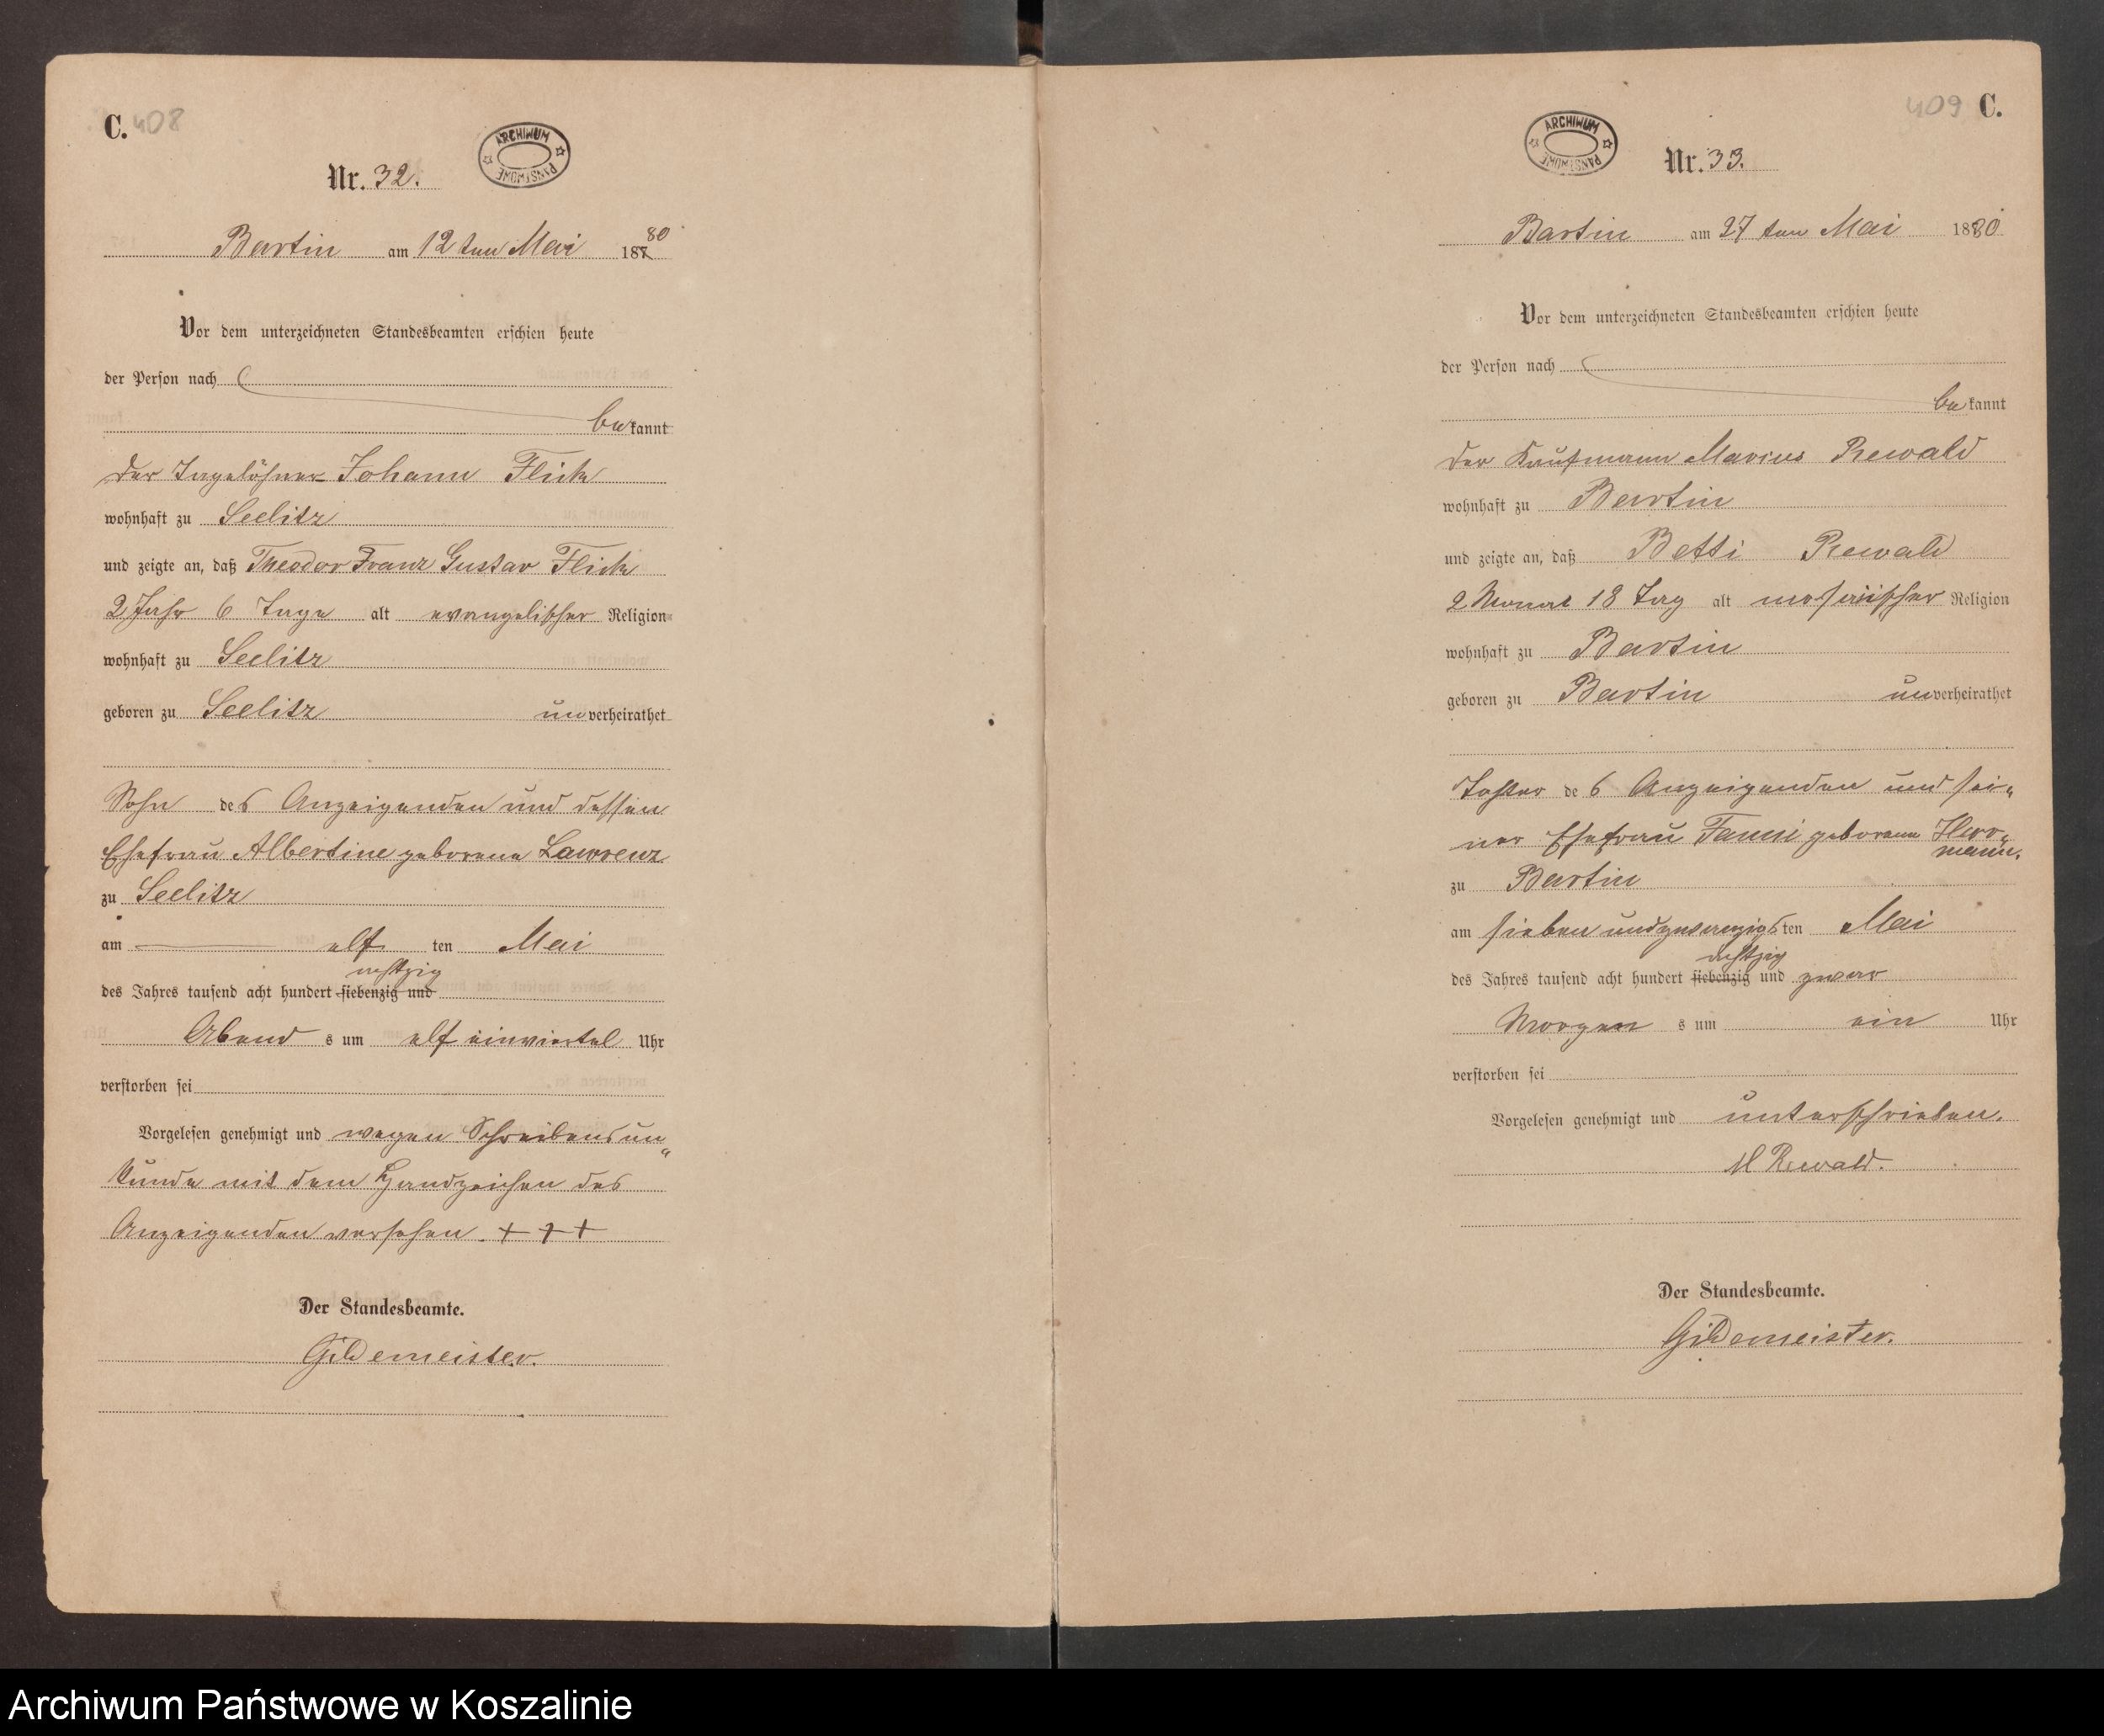 C. 408
ARCHIWUM PAŃSTWOWE
Nr. 32.
Bartin am 12 ten Mai 187 80
Vor dem unterzeichneten Standesbeamten erschien heute
der Person nach
bekannt
der Tagelöhner Johann Flick
wohnhaft zu Seelitz
und zeigte an, daß Theodor Franz Gustav Flick
2 Jahr 6 Tage alt evangelischer Religion
wohnhaft zu Seelitz
geboren zu Seelitz unverheirathet
Sohn des Anzeigenden und dessen
Ehefrau Albertine geborene Lawrenz
zu Seelitz
am elf ten Mai
achtzig
des Jahres tausend acht hundert siebenzig und
Abend s um elf einviertel Uhr
verstorben sei
Vorgelesen genehmigt und wegen Schreibensun„
kunde mit dem Handzeichen des
Anzeigenden versehen. + + +
Der Standesbeamte.
Gildemeister.
409 C.
ARCHIWUM PAŃSTWOWE
Nr. 33.
Bartin am 27 ten Mai 1880
Vor dem unterzeichneten Standesbeamten erschien heute
der Person nach
bekannt
der Kaufmann Marius Rewald
wohnhaft zu Bartin
und zeigte an, daß Betti Rewald
2 Monat 18 Tag alt mosaischer Religion
wohnhaft zu Bartin
geboren zu Bartin unverheirathet
Tochter des Anzeigenden und sei„
ner Ehefrau Fanni geborene Herr„
mann.
zu Bartin
am sieben und zwanzigsten Mai
achtzig
des Jahres tausend acht hundert siebenzig und zwar
Morgen s um ein Uhr
verstorben sei
Vorgelesen genehmigt und unterschrieben.
M Rewald.
Der Standesbeamte.
Gildemeister.
Archiwum Państwowe w Koszalinie